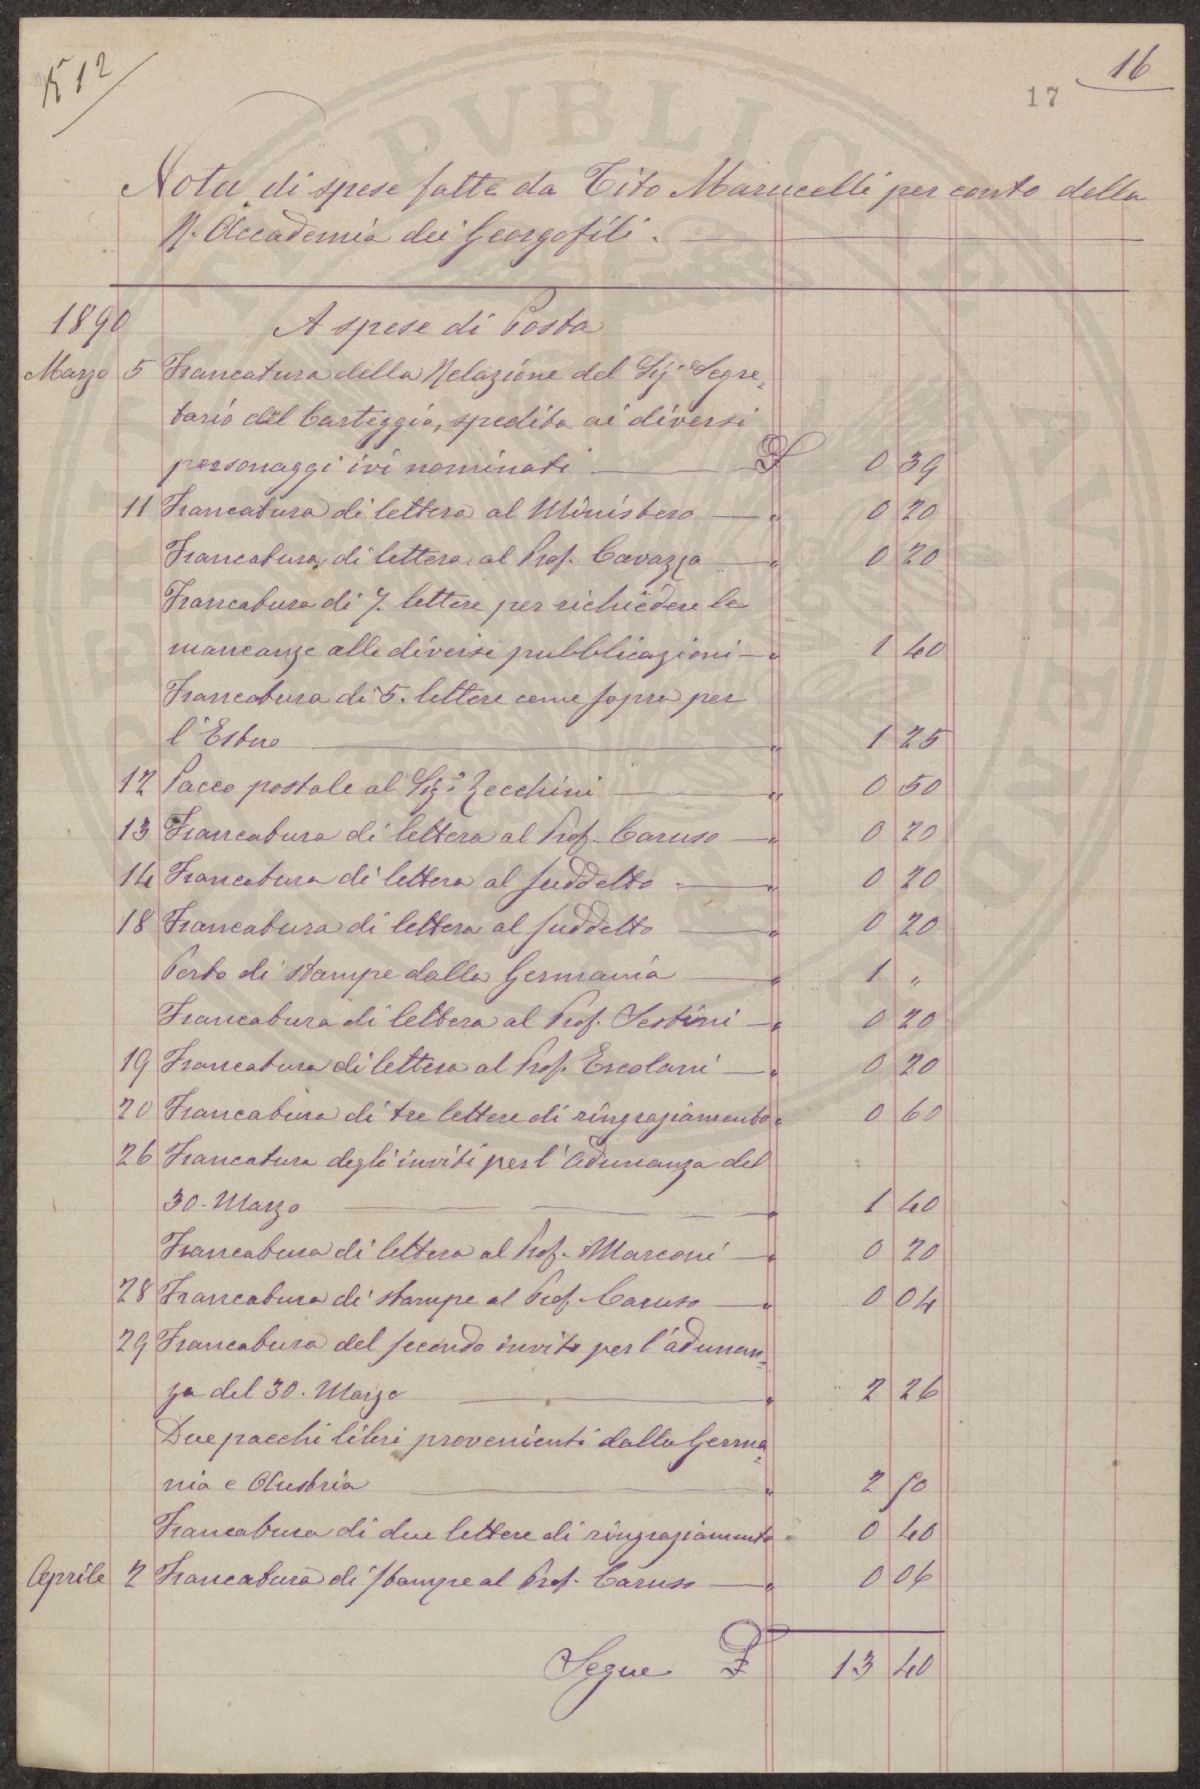 512
16
17
Nota di spese fatte da Tito Marucelli per conto della
R. Accademia dei Georgofili.
1890 A spese di Posta
Marzo 5 Francatura della Relazione del Sig. Segre=
tario del Carteggio, spedita ai diversi
personaggi ivi nominati £ 0 39
11 Francatura di lettera al Ministero " 0 20
Francatura di lettera al Prof. Cavazza " 0 20
Francatura di 7. lettere per richiedere le
mancanze alle diverse pubblicazioni " 1 40
Francatura di 5. lettere come sopra per
l'Estero " 1 25
12 Pacco postale al Sig.r Zecchini " 0 50
13 Francatura di lettera al Prof. Caruso " 0 20
14 Francatura di lettera al suddetto " 0 20
18 Francatura di lettera al suddetto " 0 20
Porto di stampe dalla Germania " 1 "
Francatura di lettera al Prof. Sestini " 0 20
19 Francatura di lettera al Prof. Ercolani " 0 20
20 Francatura di tre lettere di ringraziamento " 0 60
26 Francatura degli inviti per l'Adunanza del
30. Marzo " 1 40
Francatura di lettera al Prof. Marconi " 0 20
28 Francatura di stampe al Prof. Caruso " 0 04
29 Francatura del secondo invito per l'adunan=
za del 30. Marzo " 2 26
Due pacchi libri provenienti dalla Germa=
nia e Austria " 2 50
Francatura di due lettere di ringraziamento " 0 40
Aprile 2 Francatura di stampe al Prof. Caruso " 0 06
Segue £ 13 40